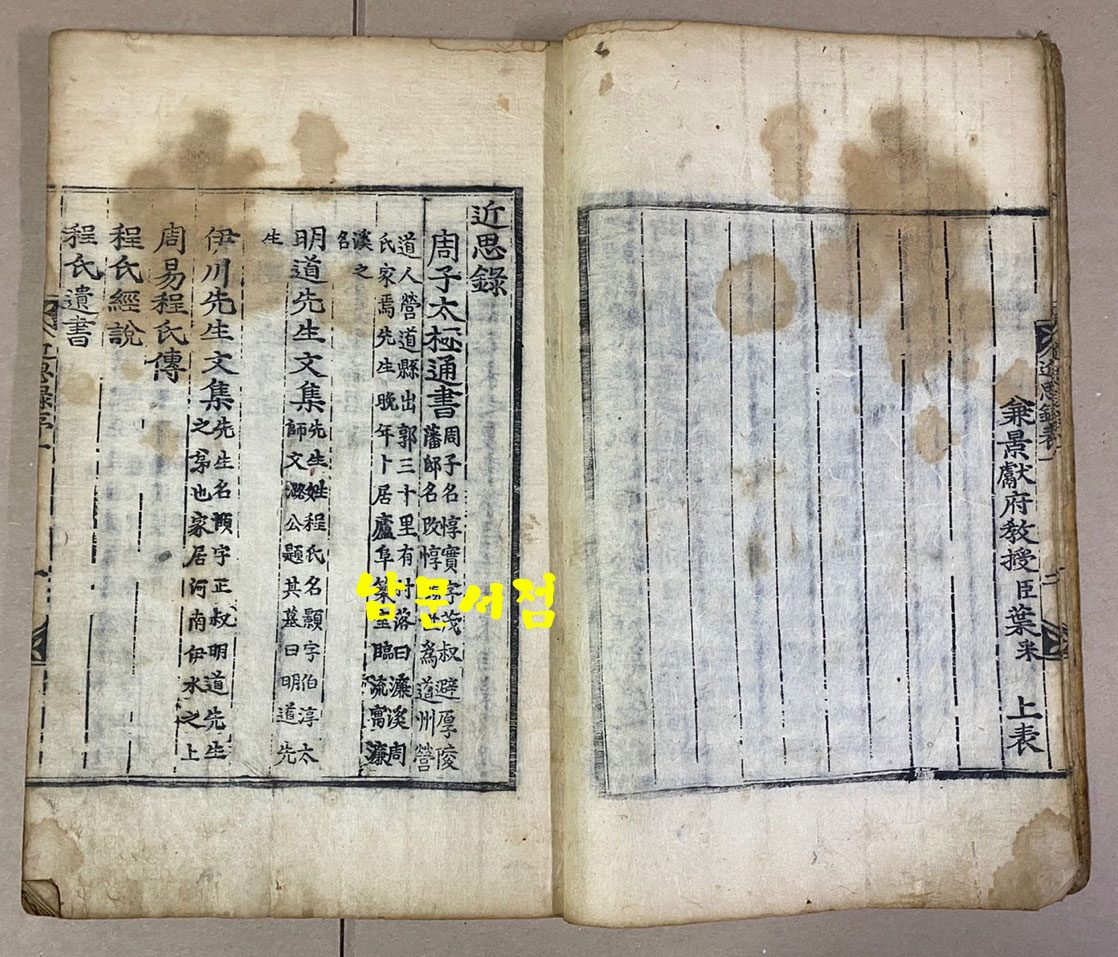 近思錄表 二
兼景獻府教授臣葉采 上表
近思錄
周子太極通書 周子名惇實字茂叔避厚陵
藩邸名改惇 世爲道州營
道人營道縣出郭三十里有村落曰濂溪周
氏家焉先生晚年卜居廬阜築室臨流寓濂
溪之
名
明道先生文集 先生姓程氏名顥字伯淳太
師文潞公題其墓曰明道先
生
伊川先生文集 先生名頤字正叔明道先生
之弟也家居河南伊水之上
周易程氏傳
程氏經說
程氏遺書
남문서점